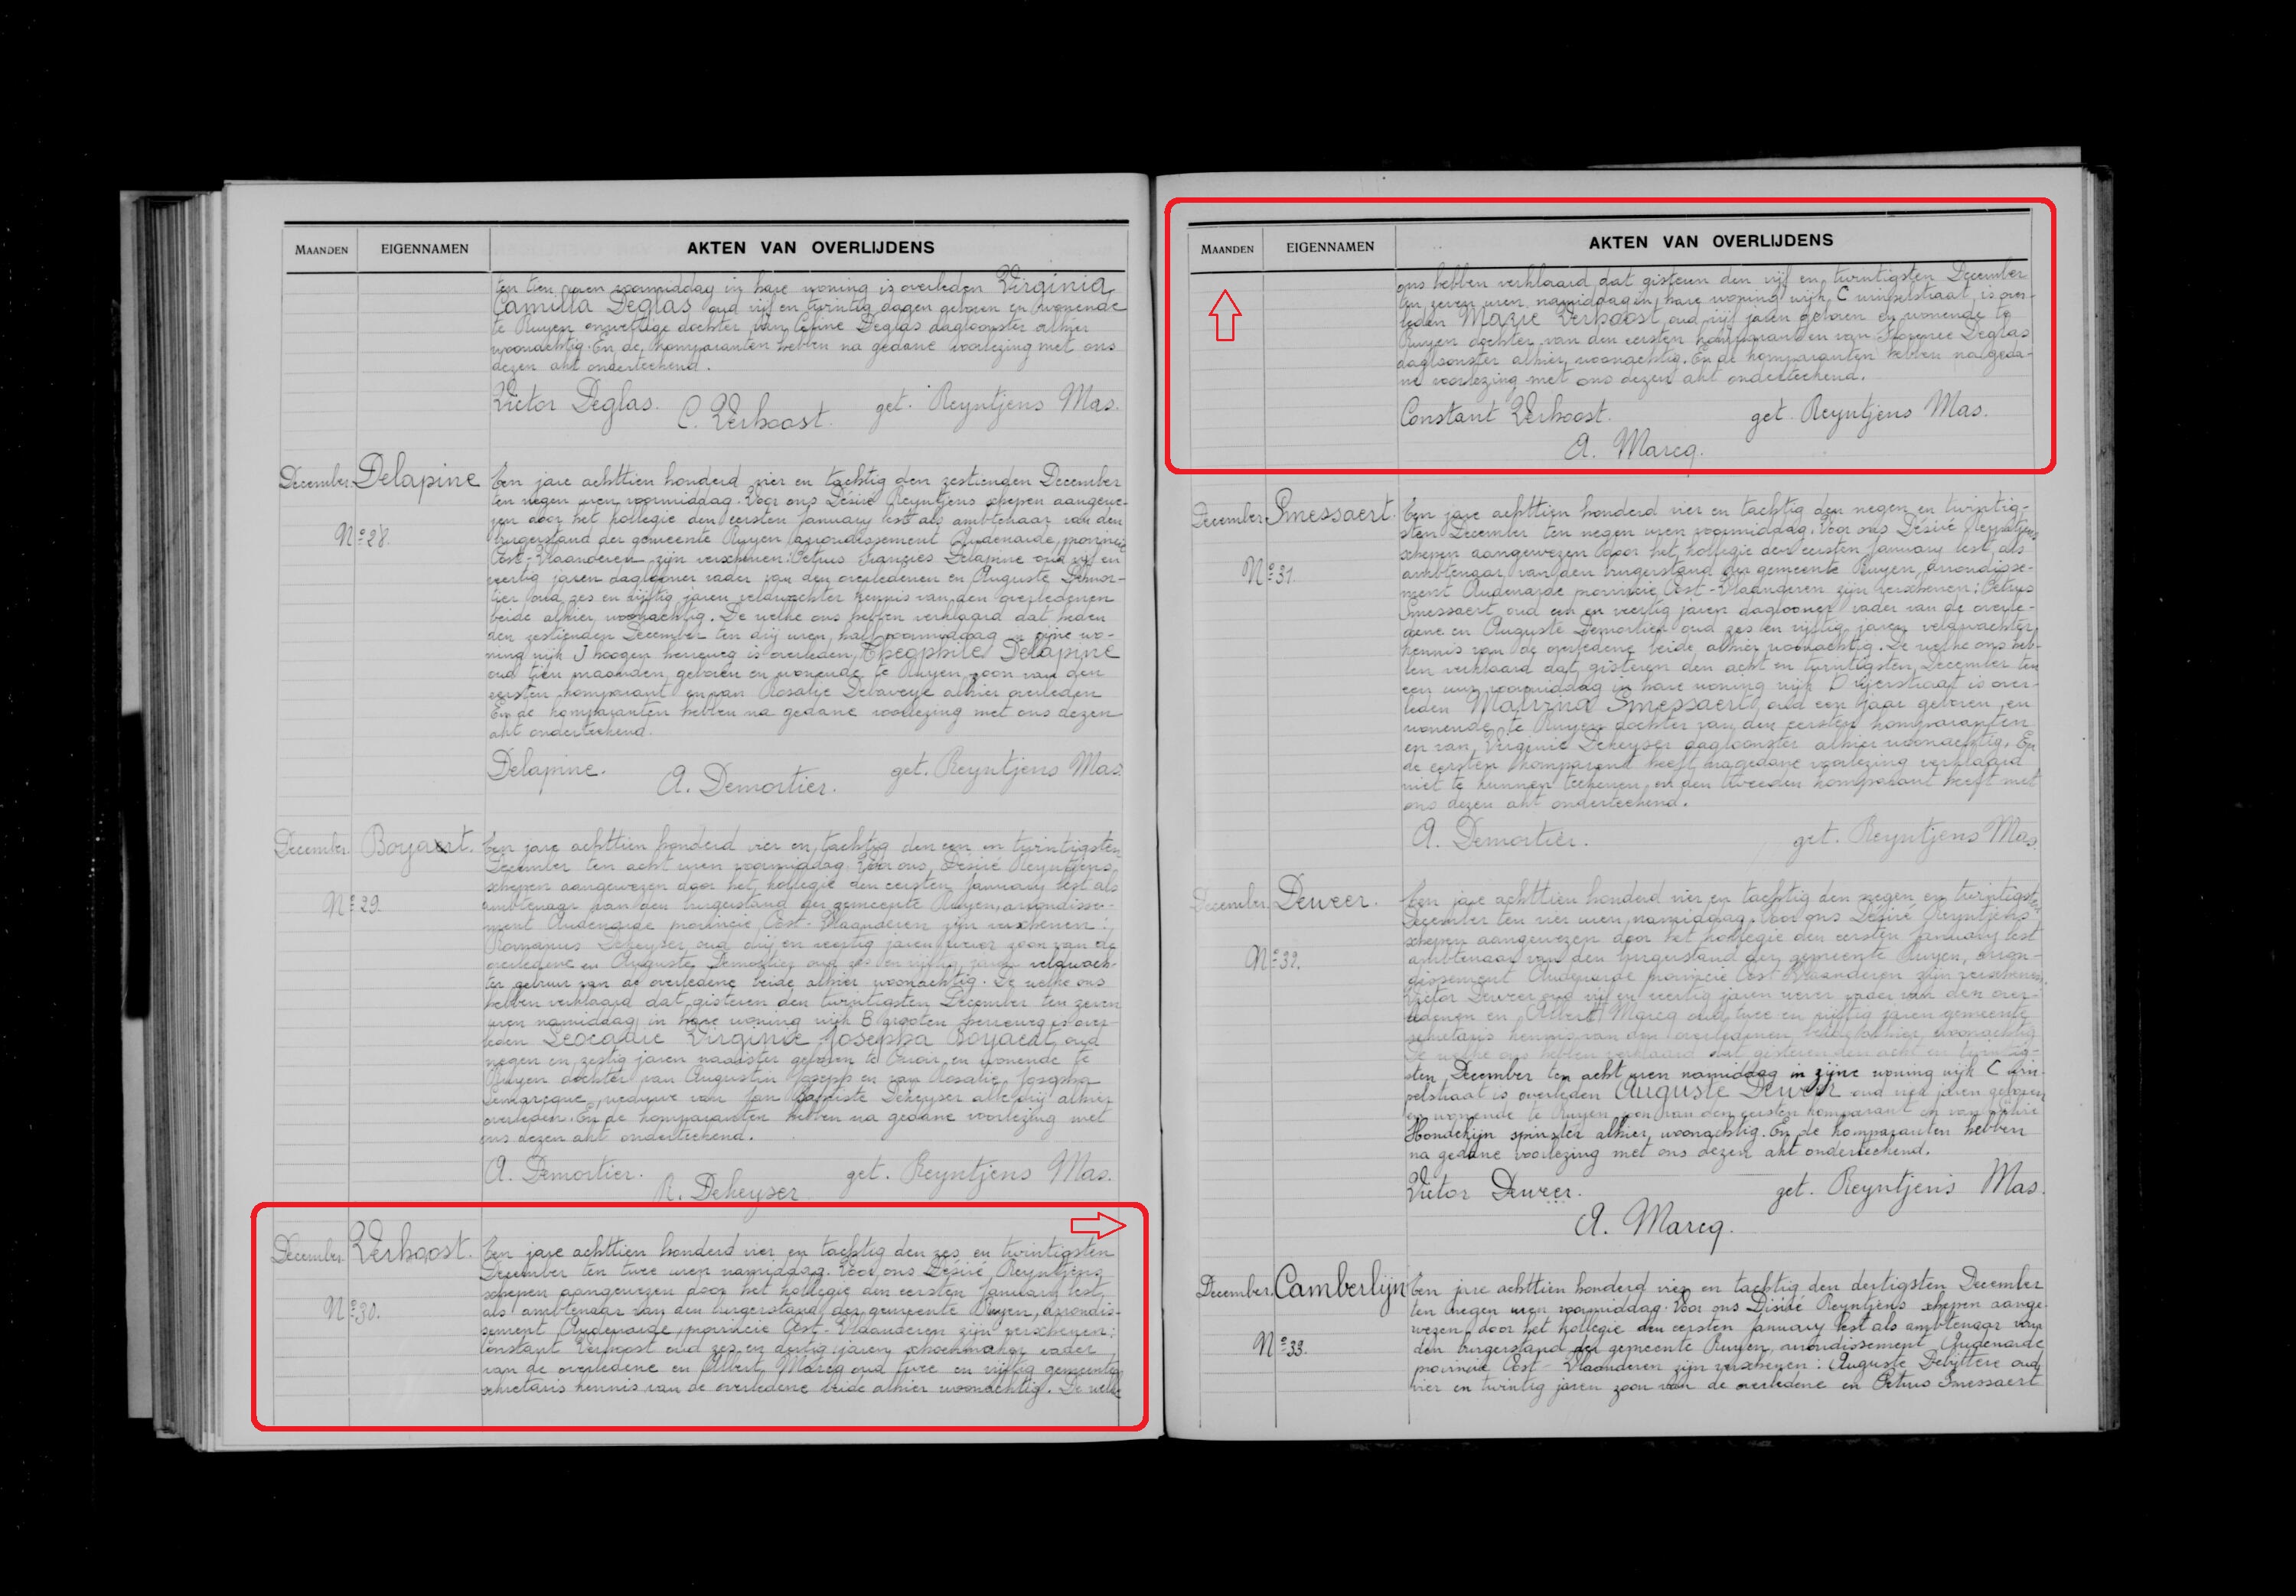 MAANDEN EIGENNAMEN AKTEN VAN OVERLIJDENS
ten tien uren voormiddag in hare woning is overleden Virginia
Camilla Deglas oud vijf en twintig dagen geboren en wonende
te Ruyen onwettige dochter van Celine Deglas dagloonster alhier
woonachtig. En de komparanten hebben na gedane voorlezing met ons
dezen akt onderteekend.
Victor Deglas. C. Verhoost. get. Reyntjens Mas.
December. Delapine Een jare achttien honderd vier en tachtig den zestienden December
ten negen uren voormiddag. Voor ons Désiré Reyntjens schepen aangewe-
zen door het kollegie den eersten January lest als ambtenaar van den
N° 28. burgerstand der gemeente Ruyen arrondissement Audenaarde, provincie
Oost-Vlaanderen zijn verschenen: Petrus Francies Delapine oud vijf en
veertig jaren daglooner vader van den overledenen en Auguste Demor-
tier oud zes en vijftig jaren veldwachter kennis van den overledenen
beide alhier woonachtig. De welke ons hebben verklaard dat heden
den zestienden December ten drij uren half voormiddag in zijne wo-
ning wijk J hoogen heerweg is overleden Theophile Delapine
oud tien maanden, geboren en wonende te Ruyen zoon van den
eersten komparant en van Rosalie Delaveye alhier overleden
En de komparanten hebben na gedane voorlezing met ons dezen
akt onderteekend.
Delapine. A. Demortier. get. Reyntjens Mas.
December. Boyaert. Een jare achttien honderd vier en tachtig den een en twintigsten
December ten acht uren voormiddag. Voor ons, Désiré Reyntjens
schepen aangewezen door het kollegie den eersten January lest als
N° 29. ambtenaar van den burgerstand der gemeente Ruyen, arrondisse-
ment Audenarde provincie Oost-Vlaanderen zijn verschenen:
Romanus Dekeyser oud drij en veertig jaren wever zoon van de
overledene en Auguste Demortier oud zes en vijftig jaren veldwach-
ter gebuur van de overledene beide alhier woonachtig. De welke ons
hebben verklaard dat gisteren den twintigsten December ten zeven
uren namiddag in hare woning wijk B grooten heerweg is over-
leden Leocadie Virginie Josepha Boyaert oud
negen en zestig jaren naaister geboren te Orroir en wonende te
Ruyen dochter van Augustin Joseph en van Rosalie Josepha
Lemarcque, weduwe van Jan Baptiste Dekeyser alle drij alhier
overleden. En de komparanten hebben na gedane voorlezing met
ons dezen akt onderteekend.
A. Demortier. R. Dekeyser get. Reyntjens Mas.
December. Verhoost. Een jare achttien honderd vier en tachtig den zes en twintigsten
December ten twee uren namiddag. Voor ons Désiré Reyntjens
schepen aangewezen door het kollegie den eersten January lest
N° 30. als ambtenaar van den burgerstand der gemeente Ruyen, arrondis-
sement Audenaarde, provincie Oost-Vlaanderen zijn verschenen:
Constant Verhoost oud zes en dertig jaren schoenmaker vader
van de overledene en Albert Marcq oud twee en vijftig gemeente
sekretaris kennis van de overledene beide alhier woonachtig. De welke
MAANDEN EIGENNAMEN AKTEN VAN OVERLIJDENS
ons hebben verklaard dat gisteren den vijf en twintigsten December
ten zeven uren namiddag in hare woning wijk C winkelstraat, is over-
leden Marie Verhoost oud vijf jaren geboren en wonende te
Ruyen dochter van den eersten komparant en van Florence Deglas
dagloonster alhier woonachtig. En de komparanten hebben na geda-
ne voorlezing met ons dezen akt onderteekend.
Constant Verhoost. get. Reyntjens Mas.
A. Marcq.
December. Smessaert. Een jare achttien honderd vier en tachtig den negen en twintig-
sten December ten negen uren voormiddag. Voor ons Désiré Reyntjens
schepen aangewezen door het kollegie den eersten January lest, als
N° 31. ambtenaar van den burgerstand der gemeente Ruyen, arrondisse-
ment Audenarde provincie Oost-Vlaanderen zijn verschenen: Petrus
Smessaert oud een en veertig jaren daglooner vader van de overle-
dene en Auguste Demortier oud zes en vijftig jaren veldwachter
kennis van de overledene beide alhier woonachtig. De welke ons heb-
ben verklaard dat gisteren den acht en twintigsten December ten
een uur voormiddag in hare woning wijk D vijverstraat is over-
leden Mathilda Smessaert oud een jaar geboren en
wonende te Ruyen dochter van den eersten komparanten
en van Virginie Dekeyser dagloonster alhier woonachtig. En
de eersten komparant heeft na gedane voorlezing verklaard
niet te kunnen teekenen, en den tweeden komparant heeft met
ons dezen akt onderteekend.
A. Demortier. get. Reyntjens Mas.
December. Deweer. Een jare achttien honderd vier en tachtig den negen en twintigsten
December ten vier uren namiddag. Voor ons Désiré Reyntjens
schepen aangewezen door het kollegie den eersten January lest
N° 32. ambtenaar van den burgerstand der gemeente Ruyen, arron-
dissement Audenarde provincie Oost Vlaanderen zijn verschenen
Victor Deweer oud vijf en veertig jaren wever vader van den over-
ledenen en Albert Marcq oud twee en vijftig jaren gemeente
sekretaris kennis van den overledenen, beide alhier, woonachtig
De welke ons hebben verklaard dat gisteren den acht en twintig-
sten December ten acht uren namiddag in zijne woning wijk C win-
kelstraat is overleden Auguste Deweer oud jaren geboren
en wonende te Ruyen zoon van den eersten komparant en van
Hondekijn spinster alhier, woonachtig. En de komparanten hebben
na gedane voorlezing met ons dezen akt onderteekend.
Victor Deweer. get. Reyntjens Mas.
A. Marcq.
December. Camberlijn Een jare achttien honderd vier en tachtig den dertigsten December
ten negen uren voormiddag. Voor ons Disiré Reyntjens schepen aange-
wezen door het kollegie den eersten January lest als ambtenaar van
N° 33. den burgerstand der gemeente Ruyen, arrondissement Audenarde
provincie Oost-Vlaanderen zijn verschenen: Auguste Debyttere oud
vier en twintig jaren zoon van de overledene en Petrus Smessaert